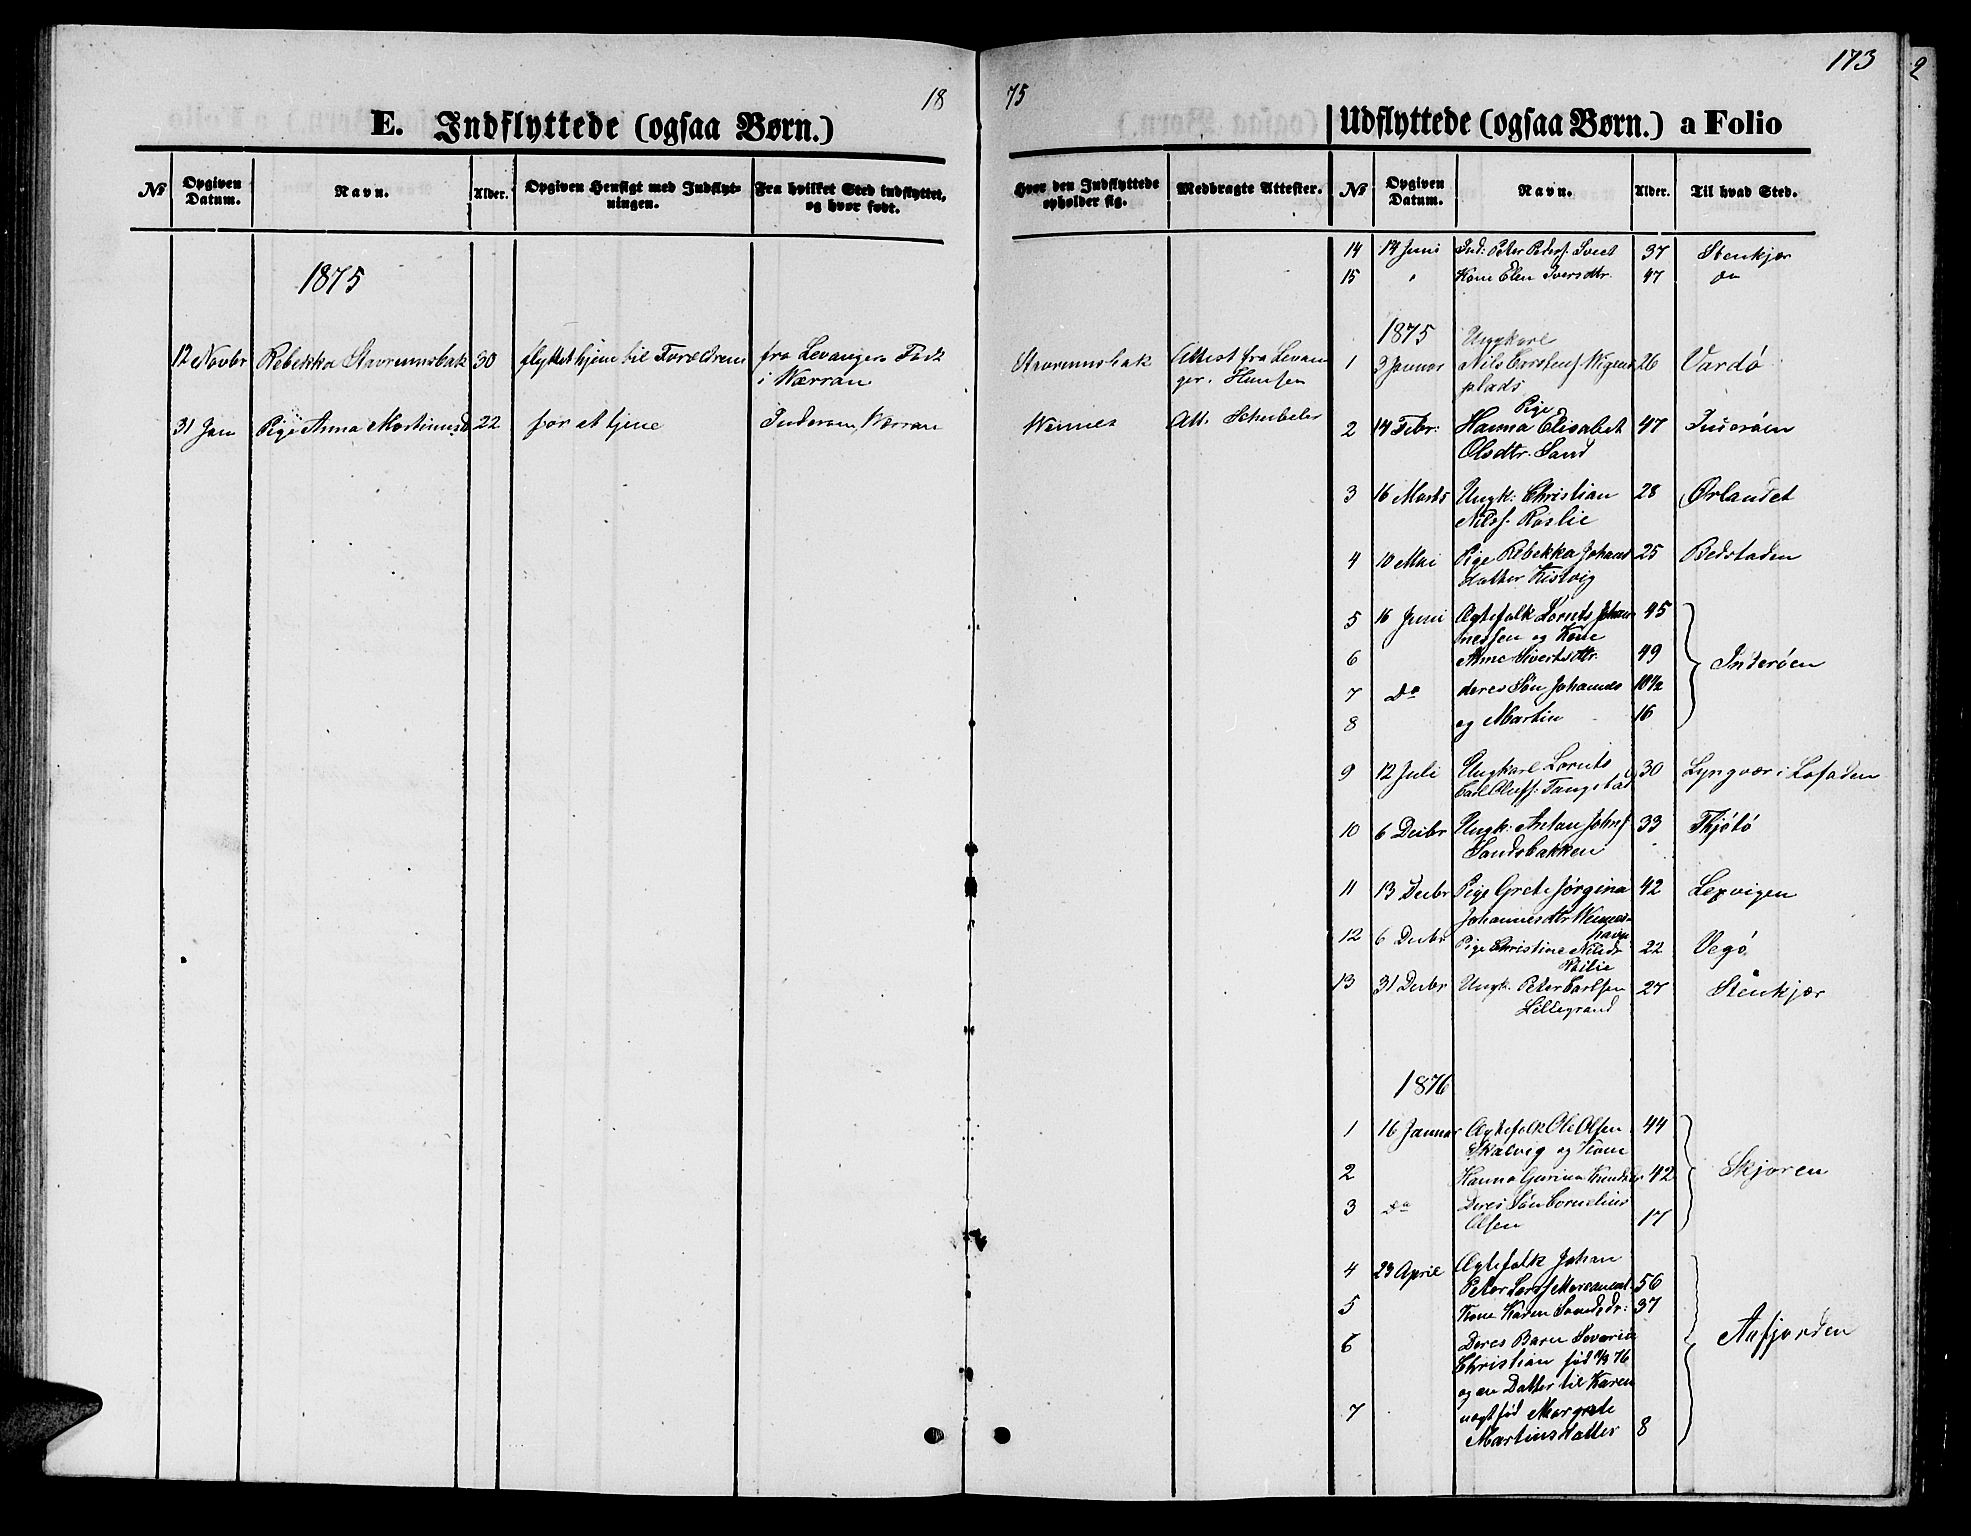 173
2
18 75
E. Indflyttede (ogsaa Børn.)
Udflyttede (ogsaa Børn.) a Folio
No Opgiven Datum. Navn. Alder. Opgiven Hensigt med Indflyt-
ningen.
Fra hvilket Sted indflyttet,
og hvor født.
Hvor den Indflyttede
opholder sig.
Medbragte Attester.
No Opgiven Datum. Navn. Alder. Til hvad Sted.
1875
12 Novbr Rebekka Stavrumsbak 30 flyttet hjem til Forældrene fra Levanger. Født Stavrumsbak Attest fra Levan
i Værran ger. Hansen
31 Jan Pige Anna Martinusd 22 for at tjene Inderøen, Værran Wennes Att. Scheibeler
14 14 Juni Ind: Peter Peders. 37 Stenkjær
15 " Kone Elen Iversdtr. 47 do
1875 Ungkarl
1 3 Januar Nils 26 Vardø
plads
Pige
2 14 Febr: Hanna Elisabet 47 Inderøen
Olsdtr. Sand
3 16 Marts Ungk: Christian 28 Ørlandet
Nilss. Røslie
4 10 Mai Pige Rebekka Johans 25 Bedstaden
datter Kistvig
5 16 Juni Ægtefolk Lornts Johan 45
nessen og Kone
6 Anne Sivertsdtr. 49 Inderøen
7 Do deres Søn Johannes 10½
8 og Martin 16
9 12 Juli Ungkarl Lornts 30 Lyngvær i Lofoden
Carl Olufs. Tangstad
10 6 Decbr Ungk: Antan Johns 33 Thjøtø
Sandsbakken
11 13 Decbr Pige Grete Jørgina 42 Lexvigen
Johannesdtr Wennes-
havn
12 6 Decbr Pige Christine Nilsdr 22 Vegø
Røslie
13 31 Decbr Ungk. Peter Carlsen 27 Stenkjær
Lillegrand
1876
1 16 Januar Ægtefolk Ole Olsen 44
Skalvig og Kone
2 Hanna Gurina Knudsdr 42 Skjøren
3 Do Deres Søn Cornelius
Olsen 17
4 23 April Ægtefolk Johan
Peter Larss 56
5 Kone Karen 37
6 Deres Barn Severin Aafjorden
Christian født 76
og en Datter til Karen
7 uægt født Margrete
Martinsdatter 8